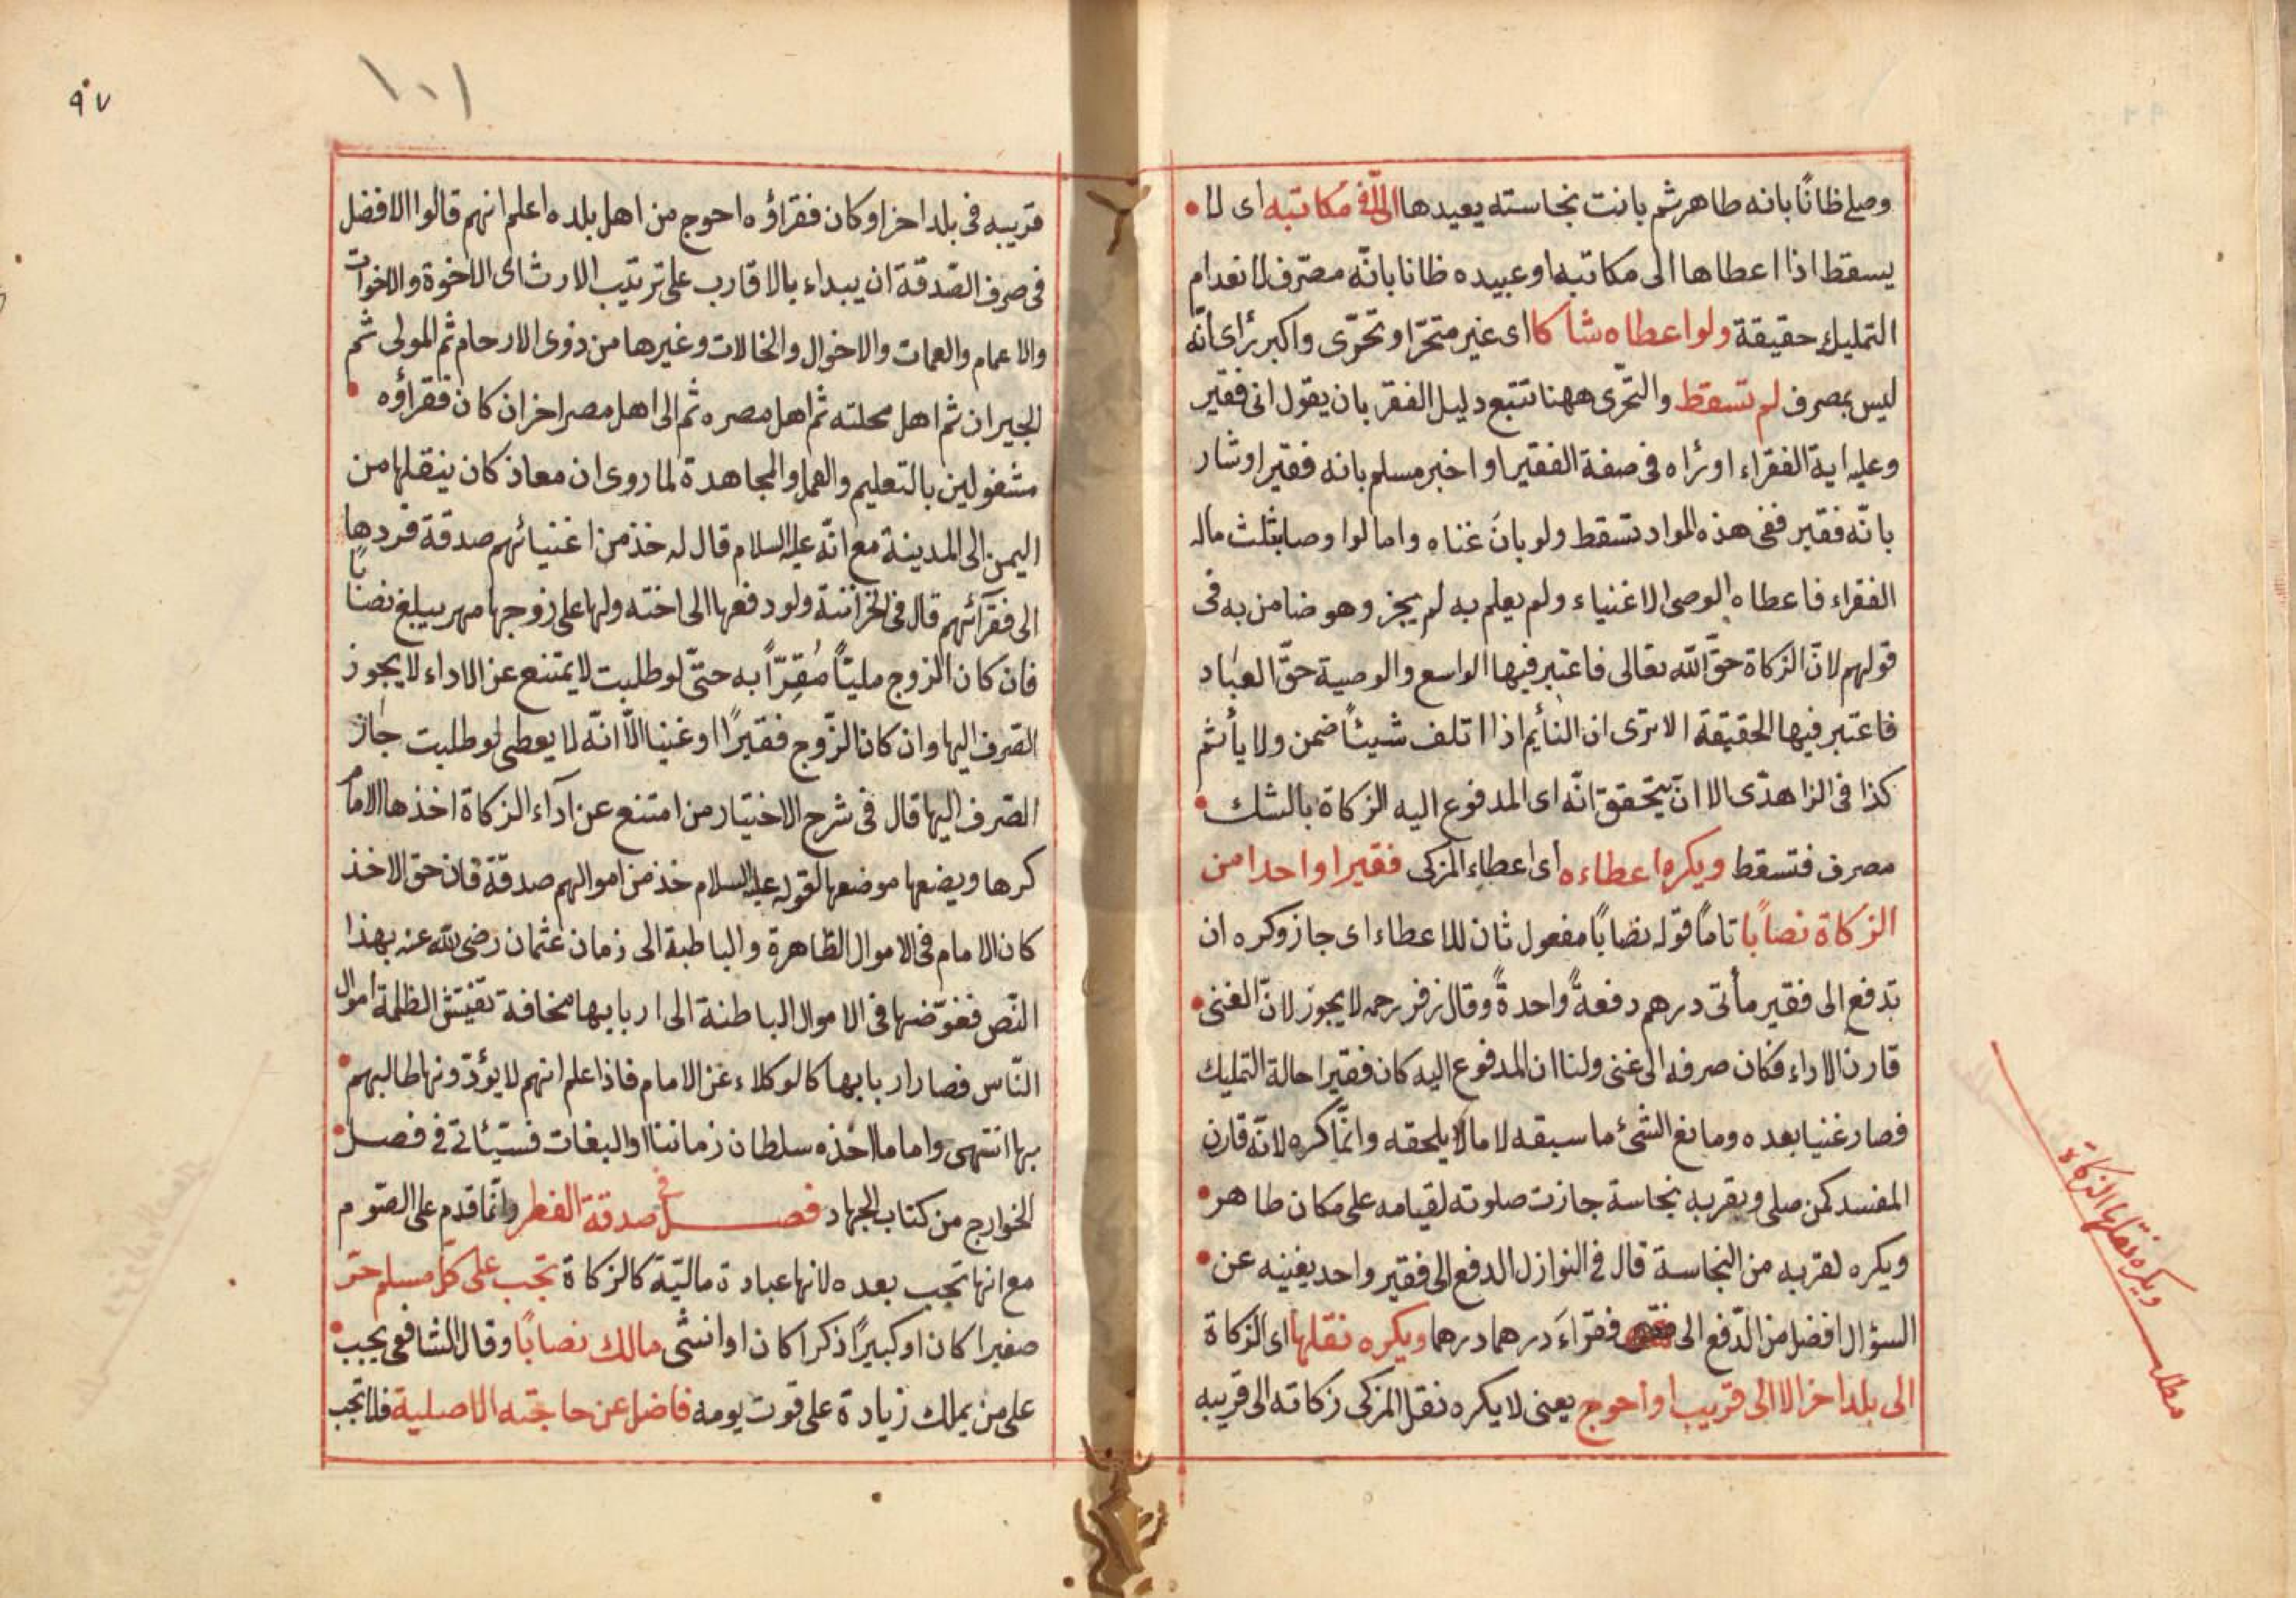 وصلى ظانًا بانه طاهر ثم بانت نجاسته يعيدها الّا فى مكاتبه اى لا
يسقط اذا اعطاها الى مكاتبه او عبيده ظانا بانّه مصرف لانعدام
التمليك حقيقة ولو اعطاه شاكا اى غير متحرّ او تحرّى واكبر رأى انّه
ليس بمصرف لم تسقط والتحرّى ههنا تتبع دليل الفقر بان يقول انى فقير
وعليه اية الفقراء او رأه فى صفة الفقير او اخبر مسلم بانه فقير او شار
بانّه فقير ففى هذه المواد تسقط ولو بانَ غناه واما لو اوصا بثلث ماله
الفقراء فاعطاه الوصى الاغنياء ولم يعلم به لم يجز وهو ضامن به فى
قولهم لانّ الزكاة حقّ الله تعالى فاعتبر فيها الواسع والوصية حقّ العباد
فاعتبر فيها الحقيقة الا ترى ان النأيم اذا اتلف شيئًا ضمن ولا يأثم
كذا فى الزاهدّى الا انّ يتحقق انّه اى المدفوع اليه الزكاة بالشك
مصرف فتسقط ويكره اعطاءه اى اعطاء المزكى فقيرا واحدا من
الزكاة نصابًا تامًا قوّله نصابًا مفعول ثان للاعطاء اى جاز وكره ان
تدفع الى فقير مأتى درهم دفعةً واحدةً وقال زفر رحمه لا يجوز لانّ الغنى
قارن الاداء فكان صرفه الى غنى ولنا ان المدفوع اليه كان فقيرا حالة التمليك
فصار غنيا بعده ومانع الشئ ما سبقه لا ما لا يلحقه وانمّا كره لانّه قارن
المفسد كمن صلى وبقربه نجاسة جازت صلوته لقيامه على مكان طاهر
ويكره لقربه من النجاسة قال فى النوازل الدفع الى فقير واحد يغنيه عن
السؤال افضل من الدّفع الى فقراءَ درهما درهما ويكره نقلها اى الزكاة
الى بلد اخر الا الى قريب او احوج يعنى لا يكره نقل المزكى زكاته الى قريبه
مطلب ويكره نقلها الزكاة
٩٧
١٠١
قريبه فى بلد اخر او كان فقراؤه احوج من اهل بلده اعلم انهم قالوا الافضل
فى صرف الصّدقة ان يبداء بالاقارب على ترتيب الارث اى الاخوة والاخوات
والاعمام والعمات والاخوال والخالات وغيرها من ذوى الارحام ثم المولى ثم
الجيران ثم اهل محلته ثم اهل مصره ثم الى اهل مصر اخر ان كان فقراؤه
مشغولين بالتعليم والعمل والمجاهدة لما روى ان معاذ كان ينقلها من
اليمن الى المدينة مع انّه عليه السلام قال له خذ من اغنيائهم صدقة فردها
الى فقرآئهم قال فى الخزانة ولو دفعها الى اخته ولها على زوجها مهر يبلغ نصابًا
فان كان الزوج مليًّا مُقِرّاً به حتىّ لو طلبت لا يمتنع عن الاداء لا يجوز
الصّرف اليها وان كان الزّوج فقيرًا او غنيا الّا انّه لا يعطى لو طلبت جاز
الصّرف اليها قال فى شرح الاختيار من امتنع عن ادآء الزكاة اخذها الامام
كرها ويضعها موضعها لقوله عليه السلام خذ من اموالهم صدقة فان حق الاخذ
كان الامام فى الاموال الظاهرة والباطبة الى زمان عثمان رضى الله عنه بهذا
النّص ففوّضها فى الاموال الباطنة الى اربابها مخافة تفتيش الظلمة اموال
النّاس فصار اربابها كالوكلاء عن الامام فاذا علم انهم لا يؤدّونها طالبهم
بها انتهى واما ما اخذه سلطان زماننا او البغات فسيئاتى فى فصل
الخوارج من كتاب الجهاد فصل فى صدقة الفطر وانّما قدم على الصّوم
مع انها تجب بعده لانها عبادة ماليّة كالزكاة تجب على كلّ مسلم حرّ
صغيرا كان او كبيرًا ذكرا كان او انثى مالك نصابًا وقال الشافعى يجب
على من يملك زيادة على قوت يومه فاضل عن حاجته الاصلية فلا تجب